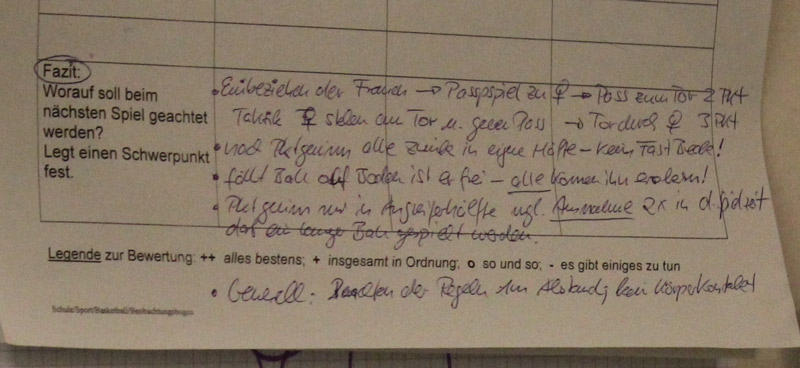 Fazit:
Worauf soll beim
nächsten Spiel geachtet
werden?
Legt einen Schwerpunkt
fest.
• Einbeziehen der Frauen → Passspiel zu ♀ → Pass zum Tor 2 Pkt
Taktik ♀ stehen am Tor u. Pass → Tor durch ♀ 3 Pkt
• nach Pktgewinn alle zurück in eigene Hälfte – kein Fast Break!
• fällt Ball auf Boden ist er frei – alle können ihn erobern!
• Pktgewinn nur in Angreiferhälfte mgl. Ausnahme 2x in d. Spielzeit
darf ein lange Ball gespielt werden.
Legende zur Bewertung: ++ alles bestens; + insgesamt in Ordnung; o so und so; - es gibt einiges zu tun
• Generell: Beachten der Regeln 1m Abstand, kein Körperkontakt
Schule/Sport/Basketball/Beobachtungsbogen